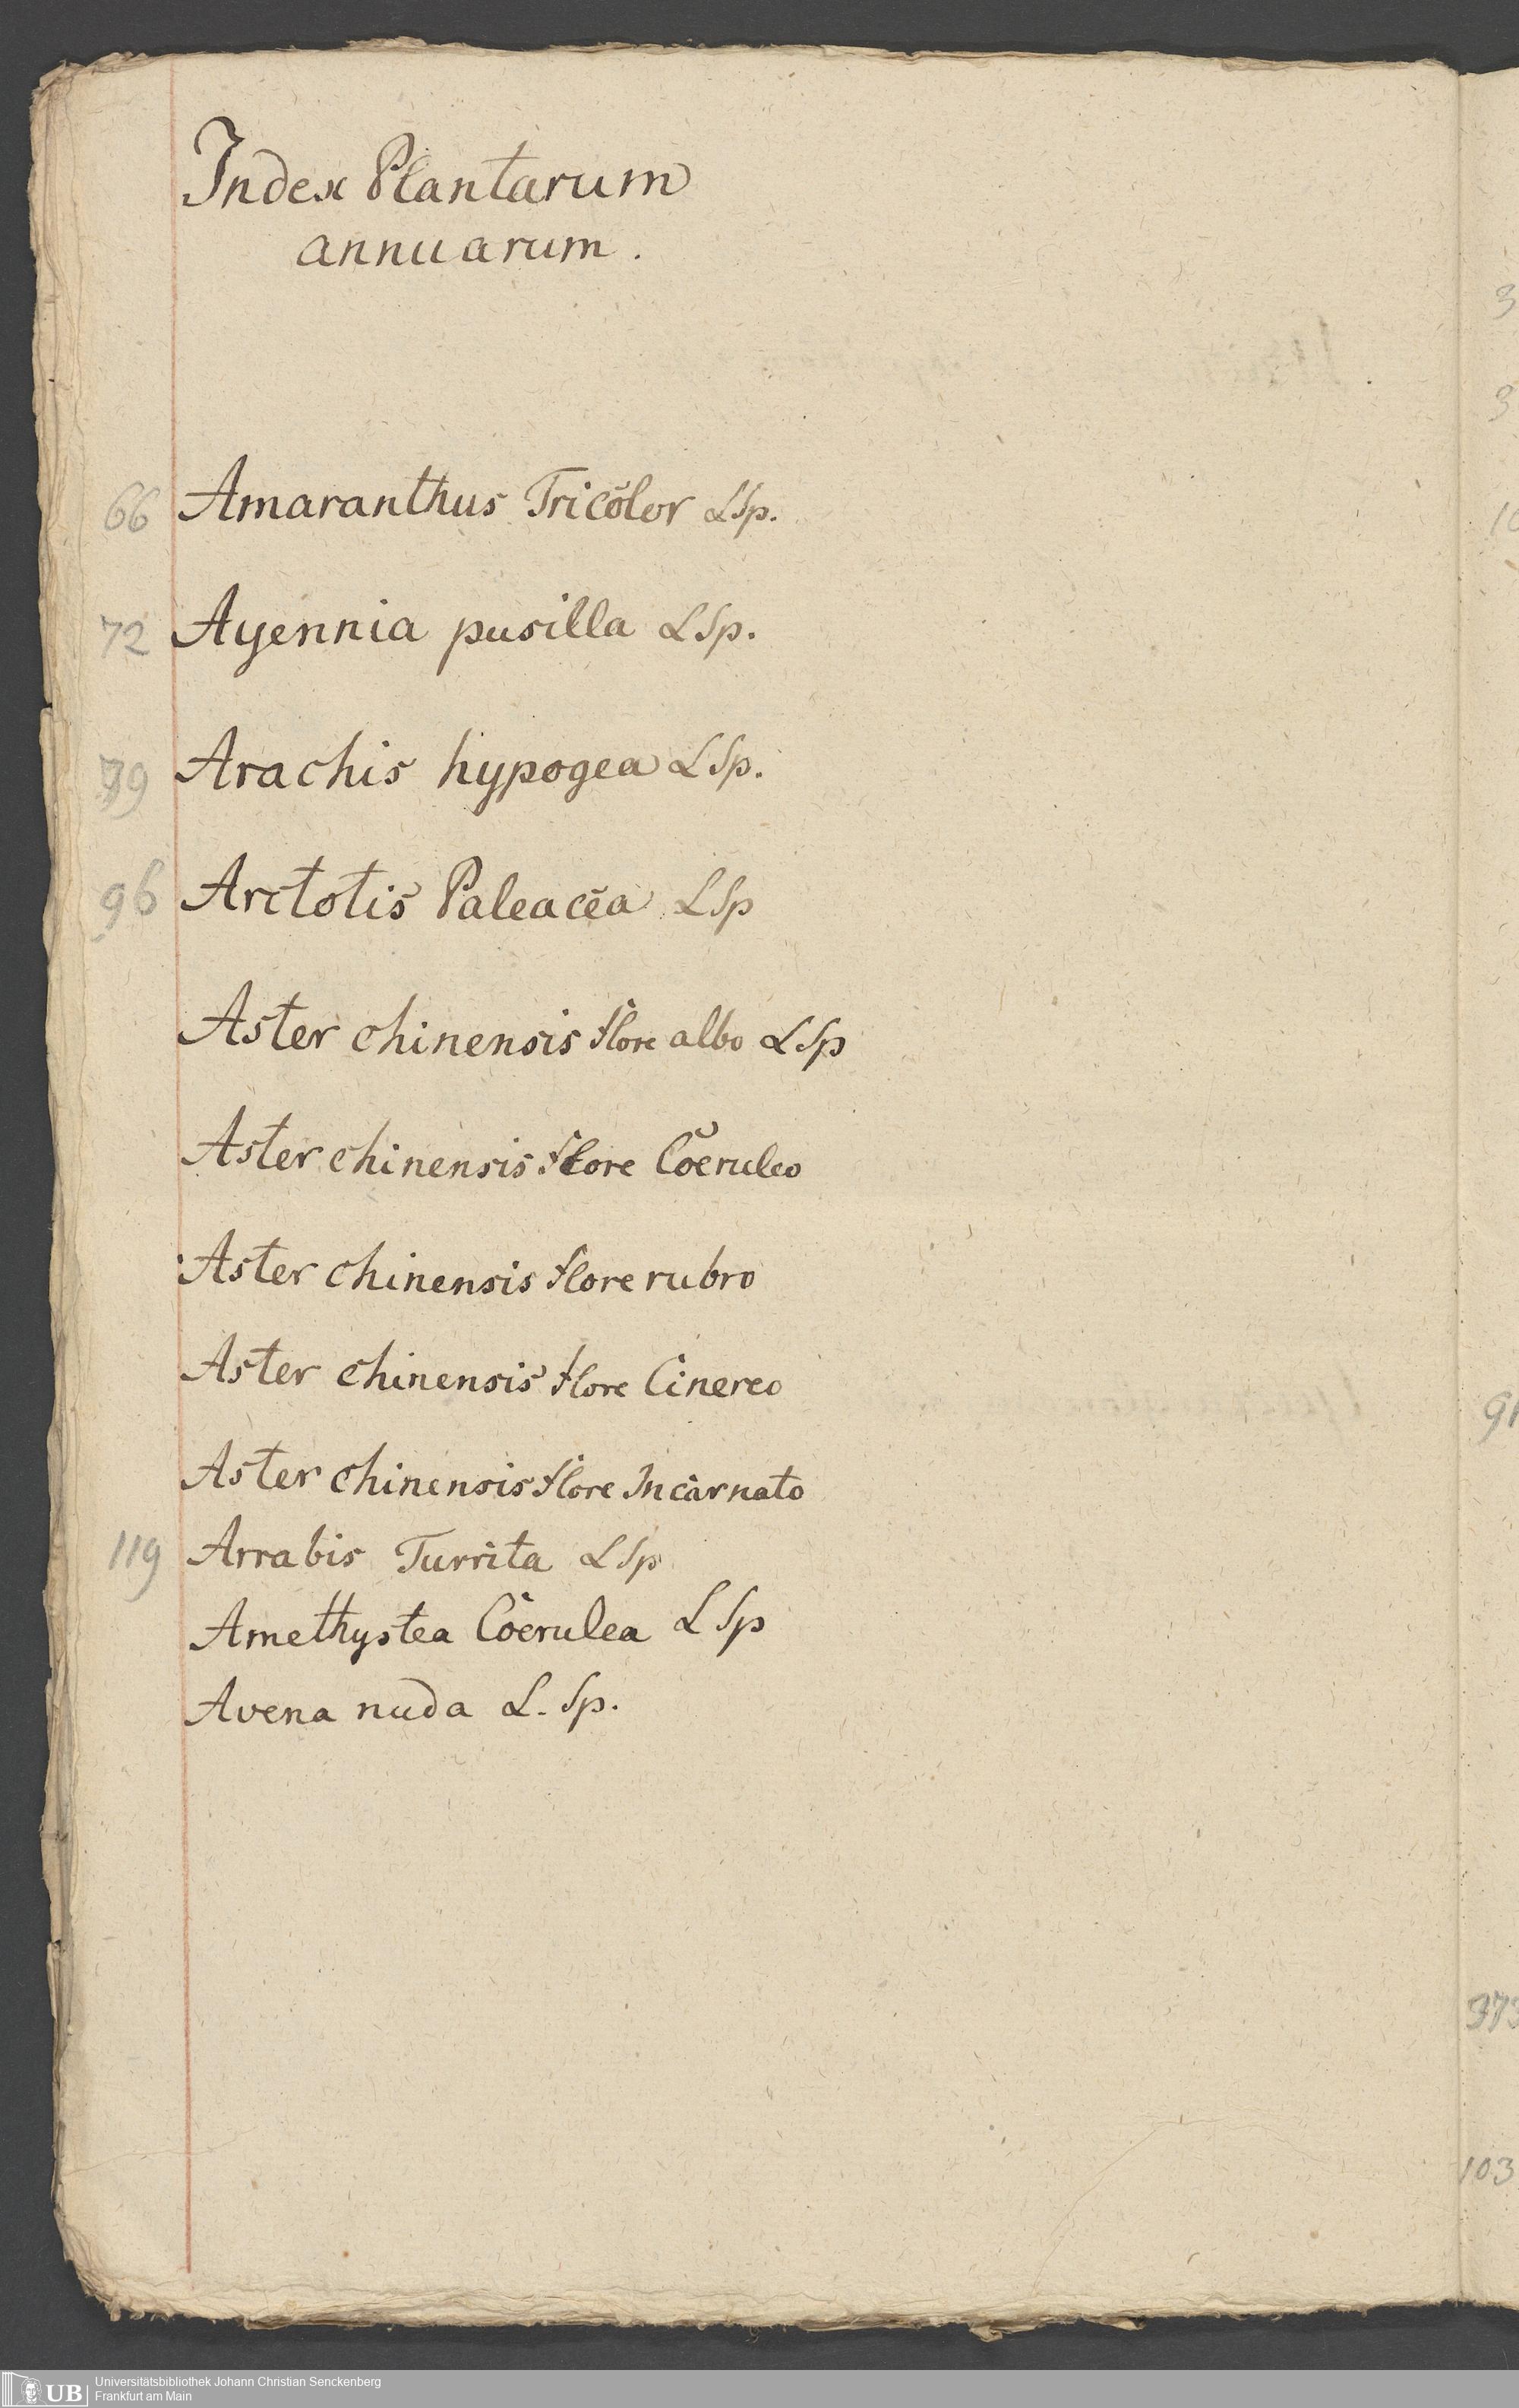 Index Plantarum
annuarum.
66 Amaranthus Tricolor LSp.
72 Ayennia pusilla LSp.
79 Arachis hypogea LSp.
96 Arctotis Paleacea LSp
Aster chinensis flore albo LSp
Aster chinensis flore Coeruleo
Aster chinensis flore rubro
Aster chinensis flore Cinereo
Aster chinensis flore Incarnato
119 Arrabis Turrita LSp
Amethystea Coerulea LSp
Avena nuda L. Sp.
3
3
10
91
373
103
UB Universitätsbibliothek Johann Christian Senckenberg
Frankfurt am Main